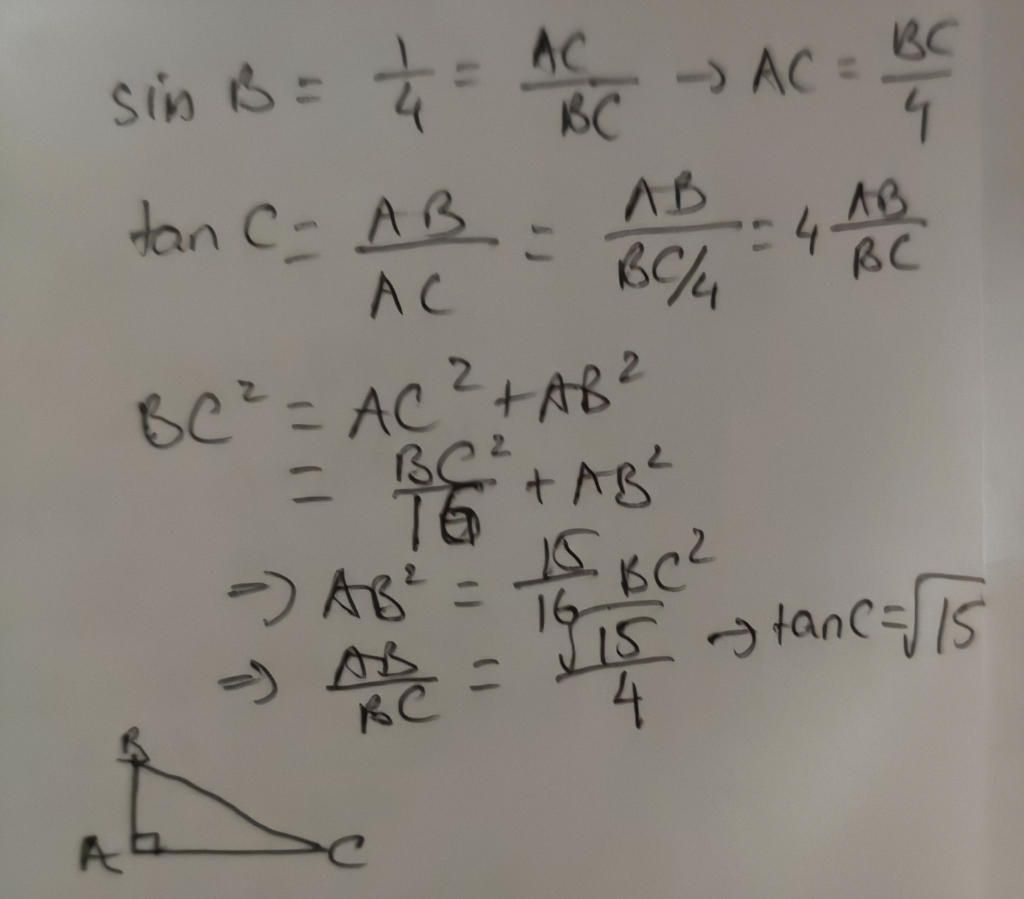 sin B = 1/4 = AC/BC → AC = BC/4
tan C = AB/AC = AB/(BC/4) = 4 AB/BC
BC² = AC² + AB²
= BC²/16 + AB²
⇒ AB² = 15/16 BC²
⇒ AB/BC = √15/4 → tan C = √15
B
A C